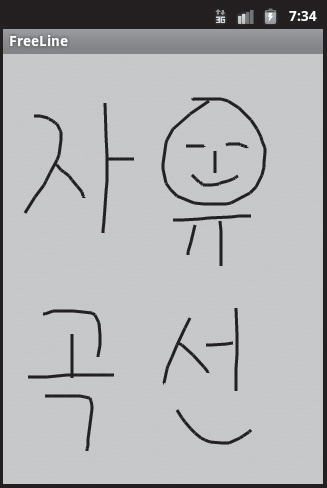 3G 7:34
FreeLine
자유
곡선